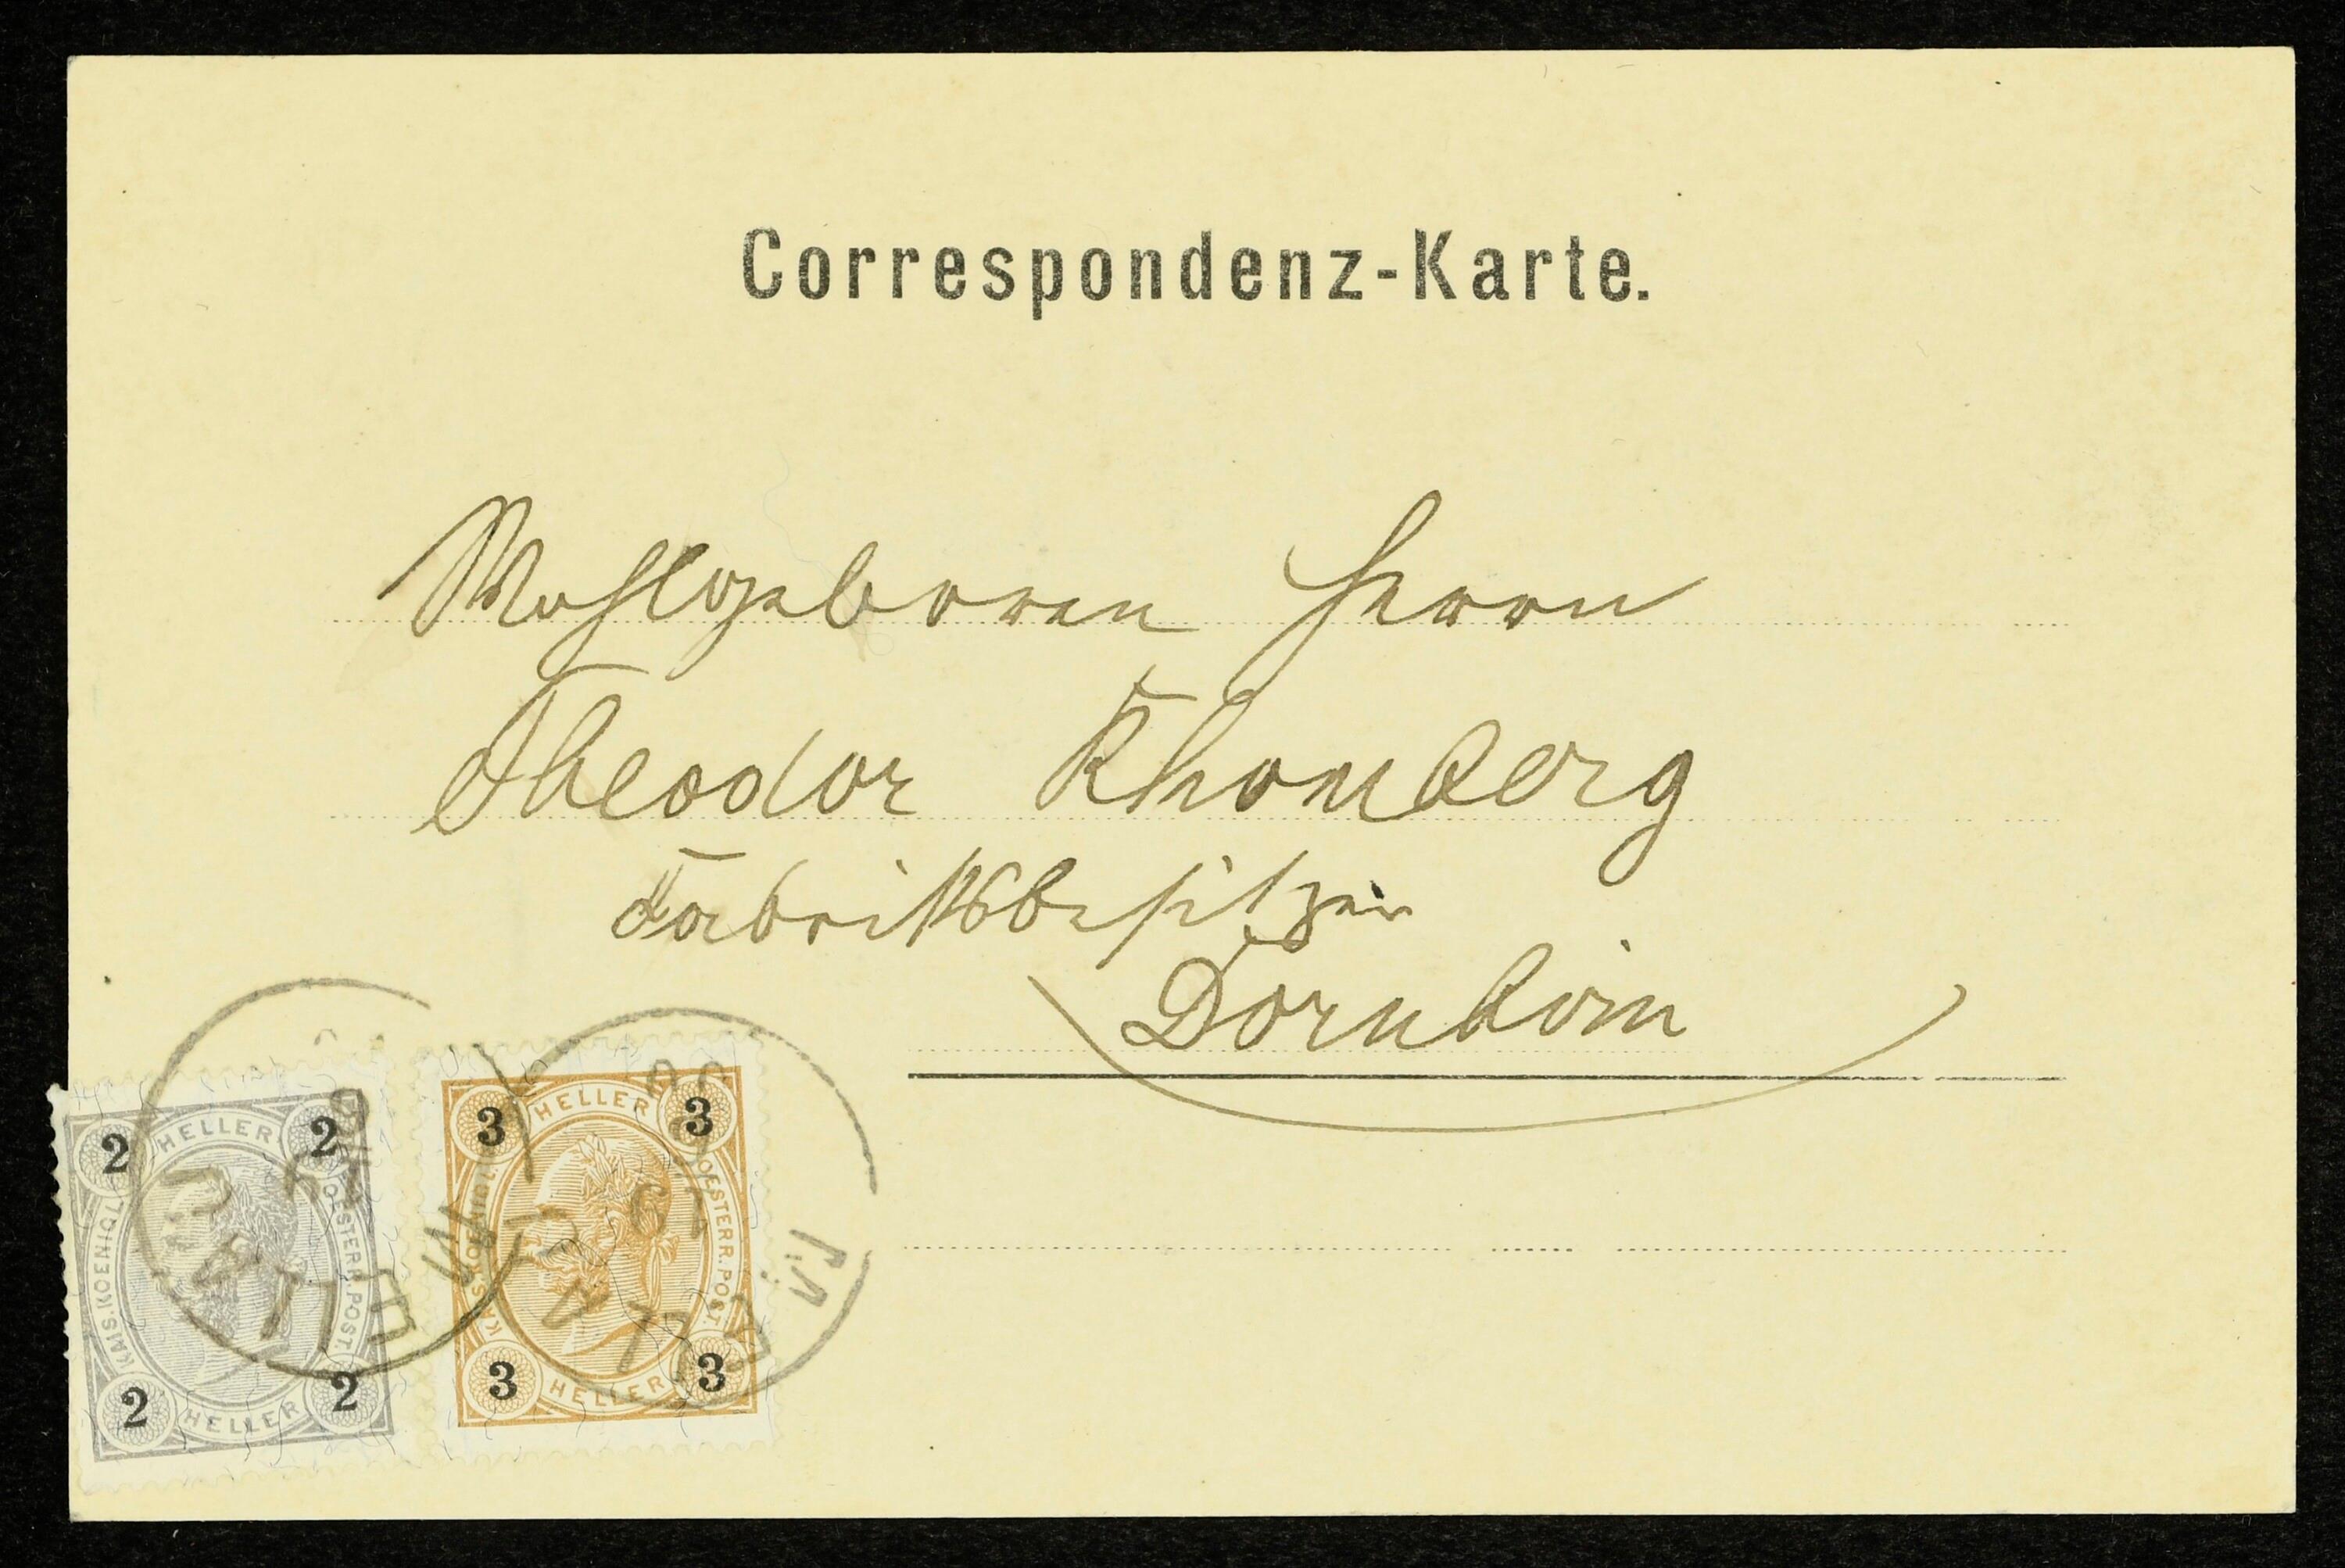 Correspondenz-Karte.
Wohlgeboren Herrn
Theodor Rhomberg
Fabriksbesitzer
Dornbirn
2 HELLER 2
KAIS. KOENIGL. OESTERR. POST.
2 HELLER 2
3 HELLER 3
KAIS. KOENIGL. OESTERR. POST.
3 HELLER 3